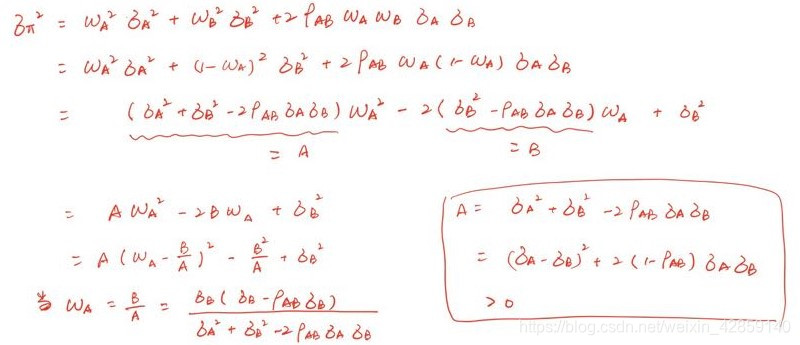 σπ² = ωA² σA² + ωB² σB² + 2 ρAB ωA ωB σA σB
= ωA² σA² + (1-ωA)² σB² + 2 ρAB ωA (1-ωA) σA σB
= (σA² + σB² - 2ρAB σA σB) ωA² - 2 (σB² - ρAB σA σB) ωA + σB²
= A = B
= A ωA² - 2B ωA + σB²
= A (ωA - B/A)² - B²/A + σB²
当 ωA = B/A = σB (σB - ρAB σB) / σA² + σB² - 2ρAB σA σB
A = σA² + σB² - 2 ρAB σA σB
= (σA - σB)² + 2 (1-ρAB) σA σB
> 0
https://blog.csdn.net/weixin_42859140